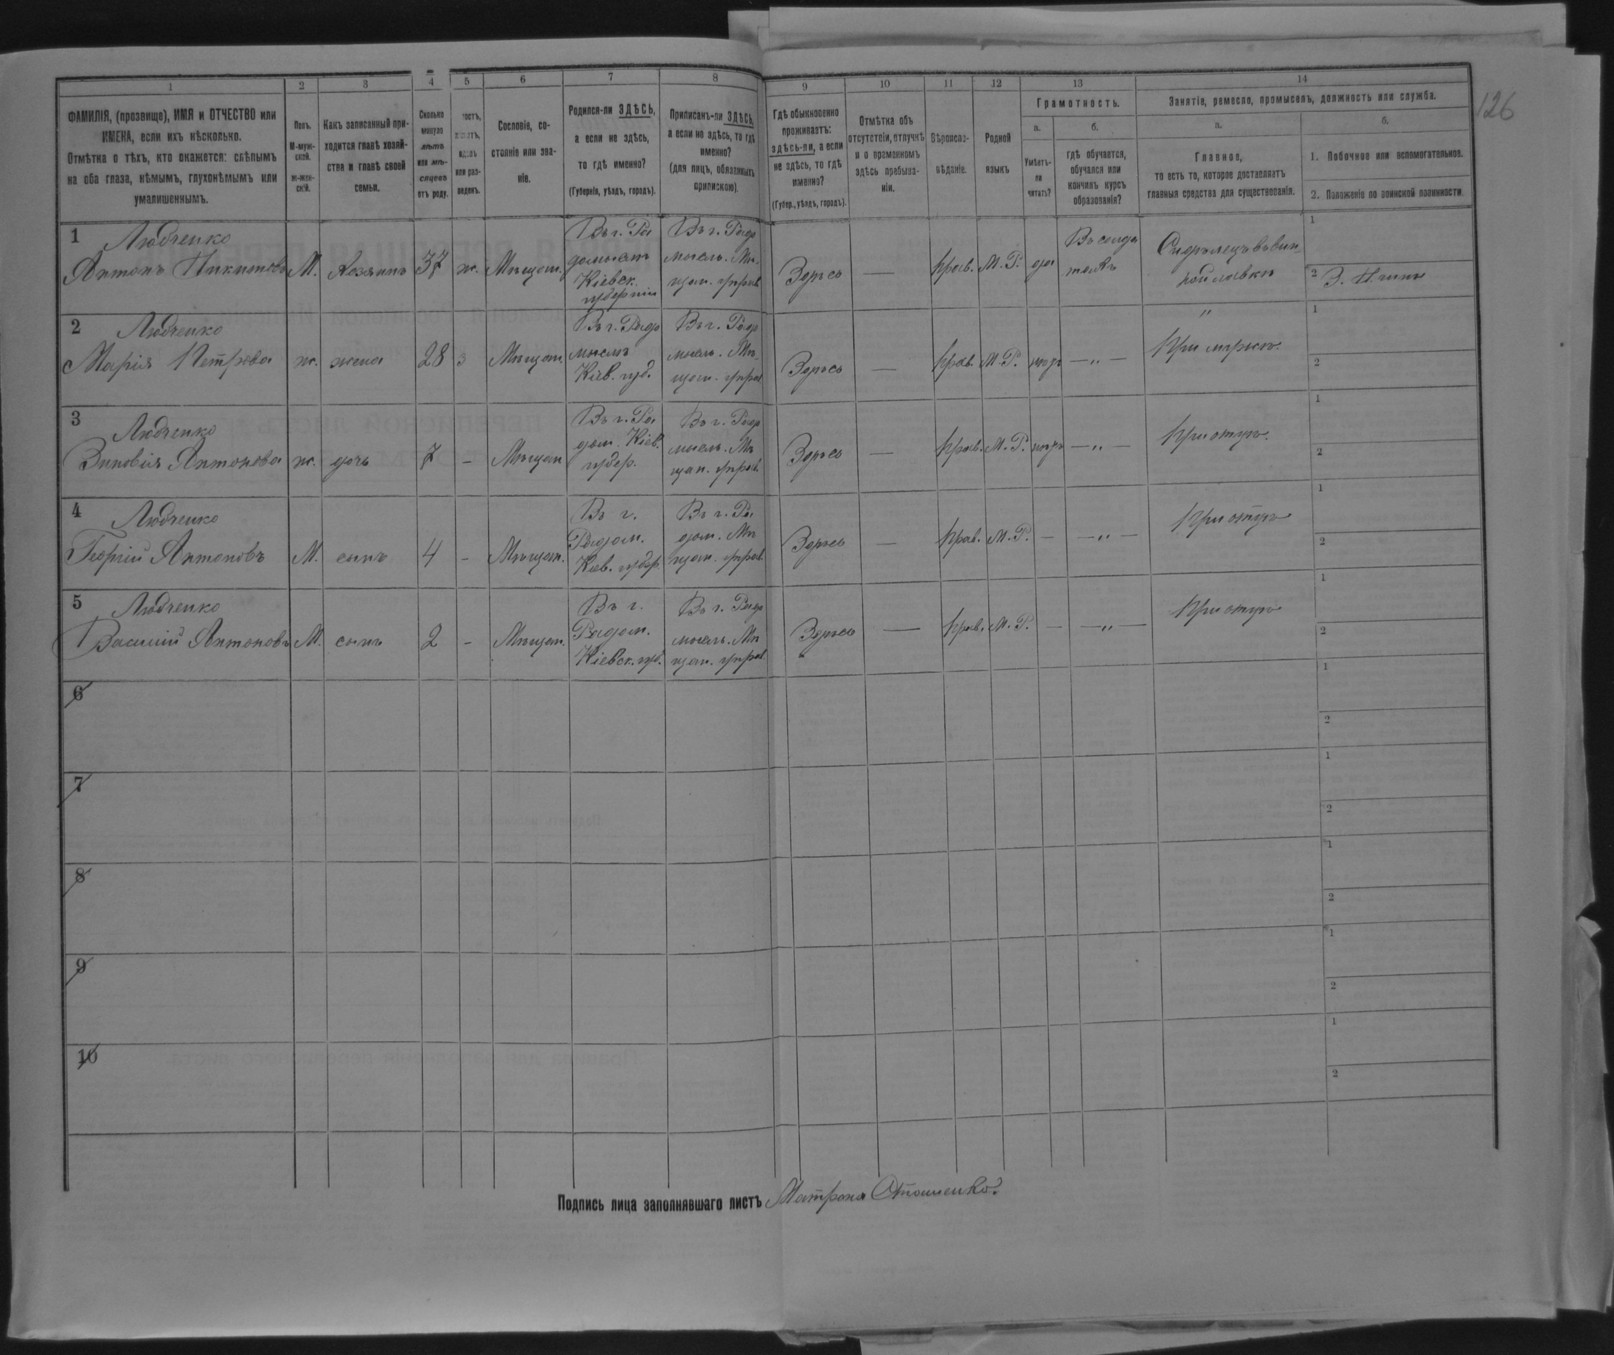 126
1
2
3
4
5
6
7
8
9
10
11
12
13
14
ФАМИЛІЯ, (прозвище), ИМЯ и ОТЧЕСТВО или
ИМЕНА, если ихъ нѣсколько.
Отмѣтка о тѣхъ, кто окажется: слѣпымъ
на оба глаза, нѣмымъ, глухонѣмымъ или
умалишеннымъ.
Полъ.
М-муж-
ской.
ж-жен-
скій.
Какъ записанный при-
ходится главѣ хозяй-
ства и главѣ своей
семьи.
Сколько
минуло
лѣтъ
или мѣ-
сяцевъ
отъ роду.
или раз-
веденъ.
Сословіе, со-
стояніе или зва-
ніе.
Родился-ли ЗДѢСЬ,
а если не здѣсь,
то гдѣ именно?
(Губернія, уѣздъ, городъ).
Приписанъ-ли ЗДѢСЬ,
а если не здѣсь, то гдѣ
именно?
(для лицъ, обязанныхъ
припискою).
Гдѣ обыкновенно
проживаетъ:
здѣсь-ли, а если
не здѣсь, то гдѣ
именно?
(Губер., уѣздъ, городъ).
Отмѣтка объ
отсутствіи, отлучкѣ
и о временномъ
здѣсь пребыва-
ніи.
Вѣроиспо-
вѣданіе.
Родной
языкъ
Грамотность.
а.
Умѣетъ-
ли
читать?
б.
гдѣ обучается,
обучался или
кончилъ курсъ
образованія?
Занятіе, ремесло, промыселъ, должность или служба.
а.
Главное,
то есть то, которое доставляетъ
главныя средства для существованія.
б.
1. Побочное или вспомогательное.
2. Положеніе по воинской повинности.
1
Людченко
Антонъ Никитовъ М. Хозяинъ 37 ж. Мѣщан.
Въ г. Ра
домыслѣ
Кіевск.
губерніи
Въ г. Радо
мысл. Мѣ
щан. управ.
Здѣсь — прав. М. Р. да
1
2
2
Людченко
Марія Петрова ж. жена 28 з Мѣщан.
Въ г. Радо
мыслѣ
Кіев. губ.
Въ г. Радо
мысл. Мѣ
щан. управ.
Здѣсь — прав. М. Р. — „ — При мужѣ
1
2
3
Людченко
Зиновія Антонова ж. дочь 7 – Мѣщан.
Въ г. Ра
дом. Кіев.
губер.
Въ г. Радо
мысл. Мѣ
щан. управ.
Здѣсь — прав. М. Р. — „ — При отцѣ
1
2
4
Людченко
Георгій Антоновъ М. сынъ 4 – Мѣщан.
Въ г.
Радом.
Кіев. губер.
Въ г. Ра
дом. Мѣ
щан. управ.
Здѣсь — прав. М. Р. — — „ — При отцѣ
1
2
5
Людченко
Василій Антоновъ М. сынъ 2 – Мѣщан.
Въ г.
Радом.
Кіевск. губ.
Въ г. Радо
мысл. Мѣ
щан. управ.
Здѣсь — прав. М. Р. — — „ — При отцѣ
1
2
6
1
2
7
1
2
8
1
2
9
1
2
10
1
2
Подпись лица заполнявшаго листъ Матрона